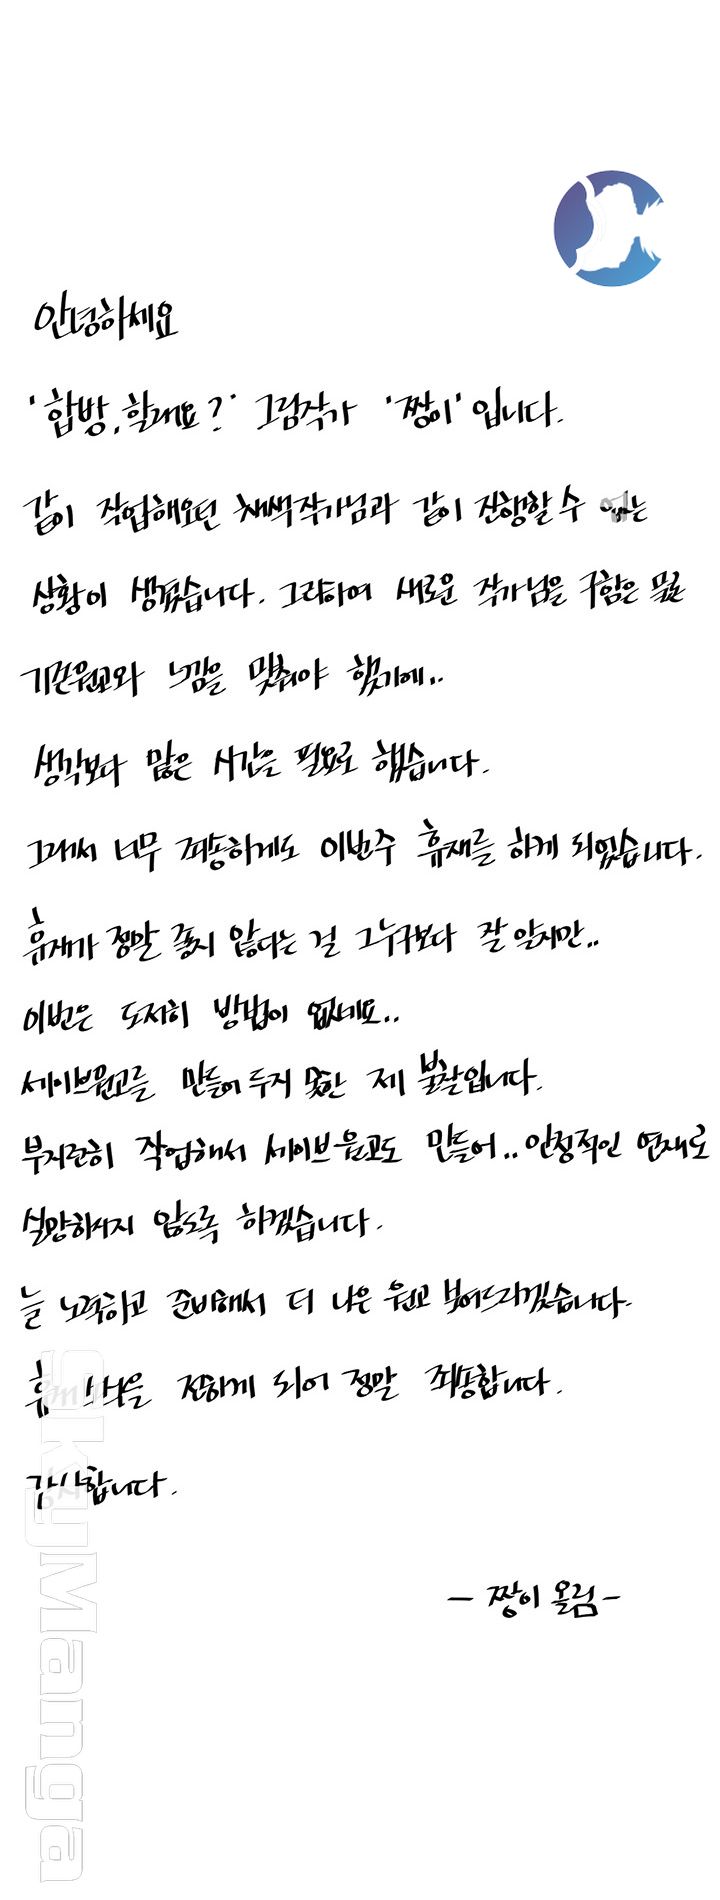 안녕하세요
'합방, 할래요?' 그림작가 '짱이' 입니다.
같이 작업해오던 채색작가님과 같이 진행할 수 없는
상황이 생겼습니다. 그리하여 새로운 작가님을 구함은 물론
기존원고와 느낌을 맞춰야 했기에..
생각보다 많은 시간을 필요로 했습니다.
그래서 너무 죄송하게도 이번주 휴재를 하게 되었습니다.
휴재가 정말 좋지 않다는 걸 그 누구보다 잘 알지만..
이번은 도저히 방법이 없네요..
세이브원고를 만들어 두지 못한 제 불찰입니다.
부지런히 작업해서 세이브원고도 만들어.. 안정적인 연재로
실망하시지 않도록 하겠습니다.
늘 노력하고 준비해서 더 나은 원고 보여드리겠습니다.
휴 소식을 전하게 되어 정말 죄송합니다.
감사합니다.
- 짱이 올림 -
SkyManga